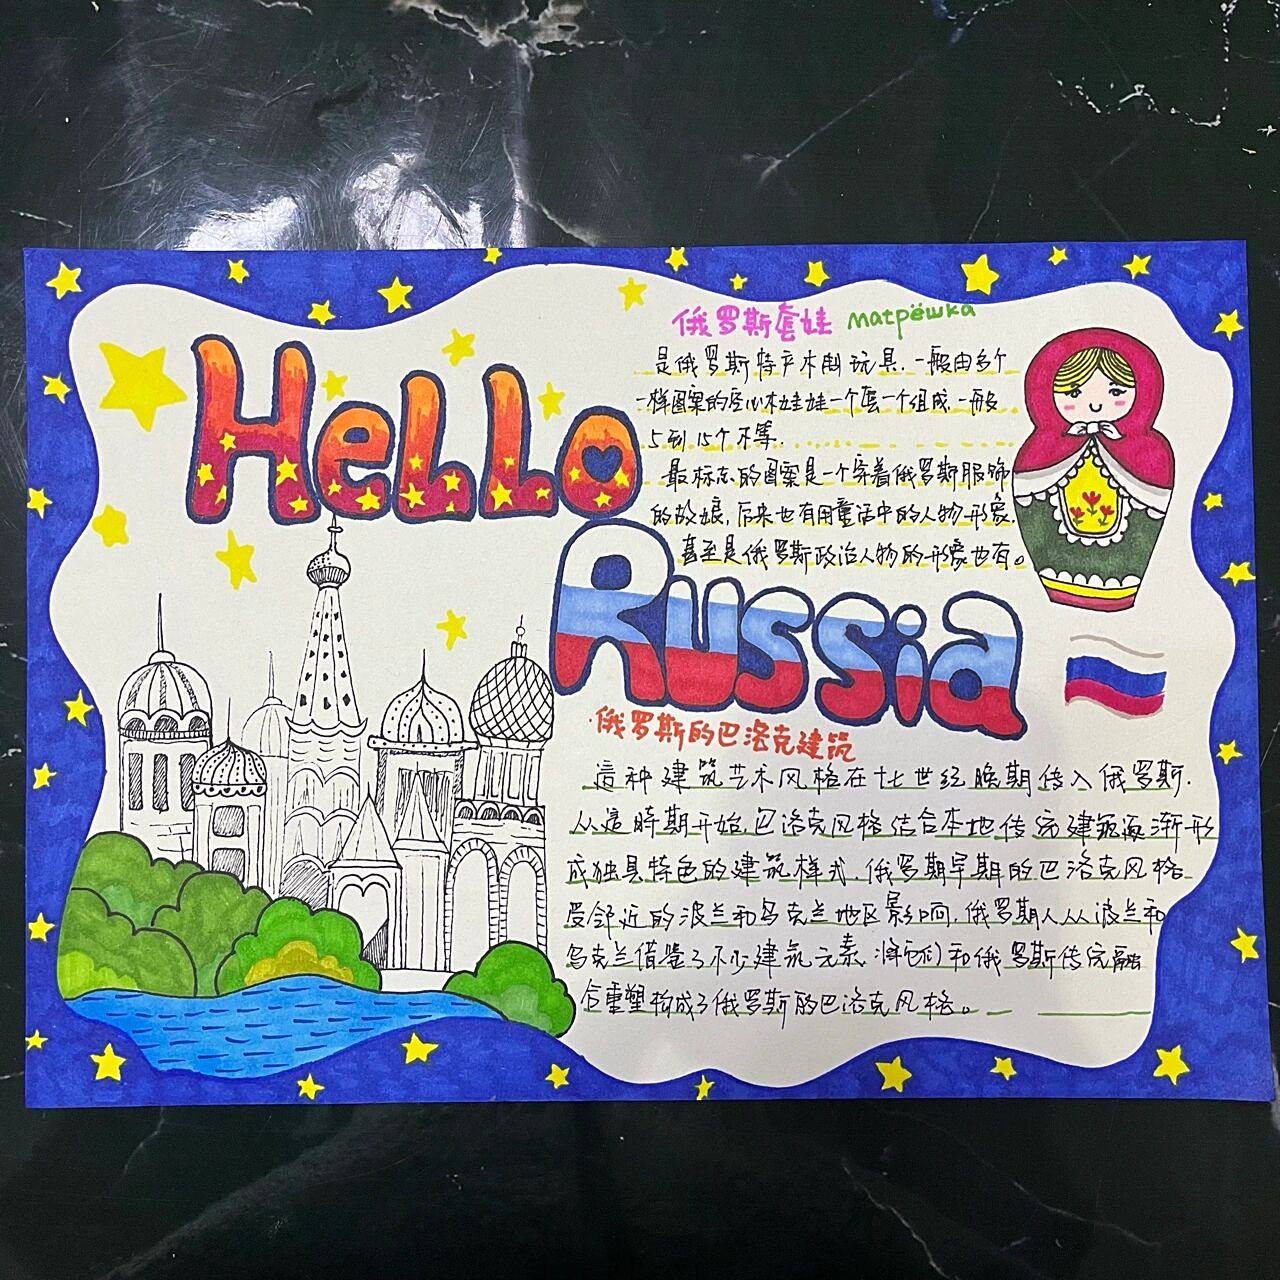 Hello
Russia
俄罗斯套娃 матрёшка
是俄罗斯特产木制玩具.一般由多个
一样图案的空心木娃娃一个套一个组成.一般
5到15个不等.
最标志的图案是一个穿着俄罗斯服饰
的姑娘,后来也有用童话中的人物形象.
甚至是俄罗斯政治人物的形象也有。
·俄罗斯的巴洛克建筑
這种建筑艺术风格在十七世纪晚期传入俄罗斯.
从這時期开始,巴洛克风格结合本地传统建筑逐渐形
成独具特色的建筑样式.俄罗斯早期的巴洛克风格
受邻近的波兰和乌克兰地区影响.俄罗斯人从波兰和
乌克兰借鉴了不少建筑元素.将它们和俄罗斯传统融
合重塑构成了俄罗斯的巴洛克风格。